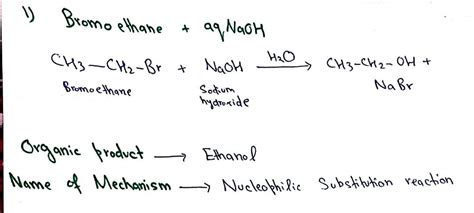 1) Bromoethane + aq.NaOH
CH3—CH2-Br + NaOH H2O → CH3-CH2-OH + NaBr
Bromoethane Sodium hydroxide
Organic product → Ethanol
Name of Mechanism → Nucleophilic Substitution reaction